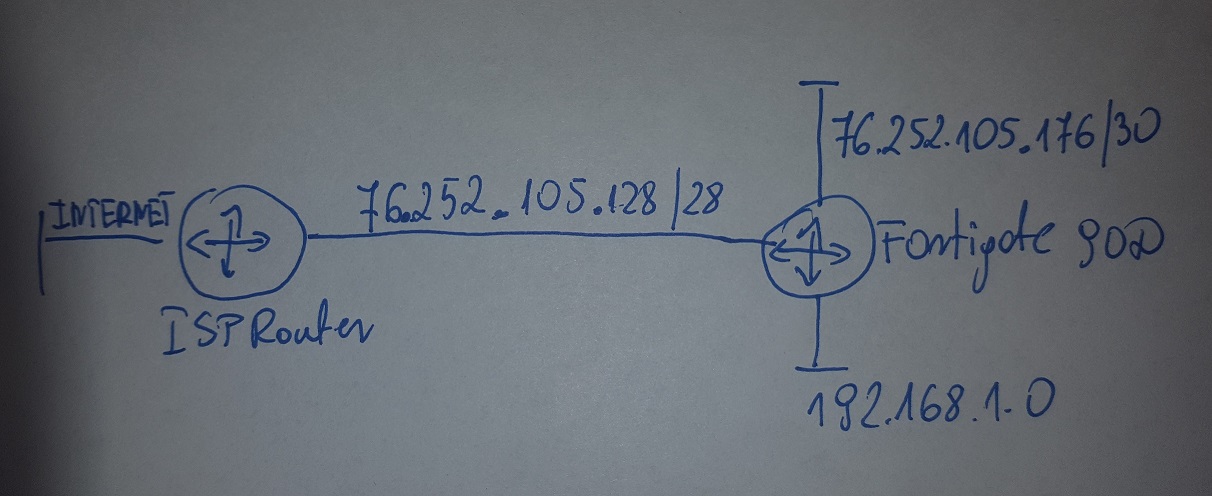 76.252.105.176/30
INTERNET
76.252.105.128/28
Fortigate 90D
ISP Router
192.168.1.0